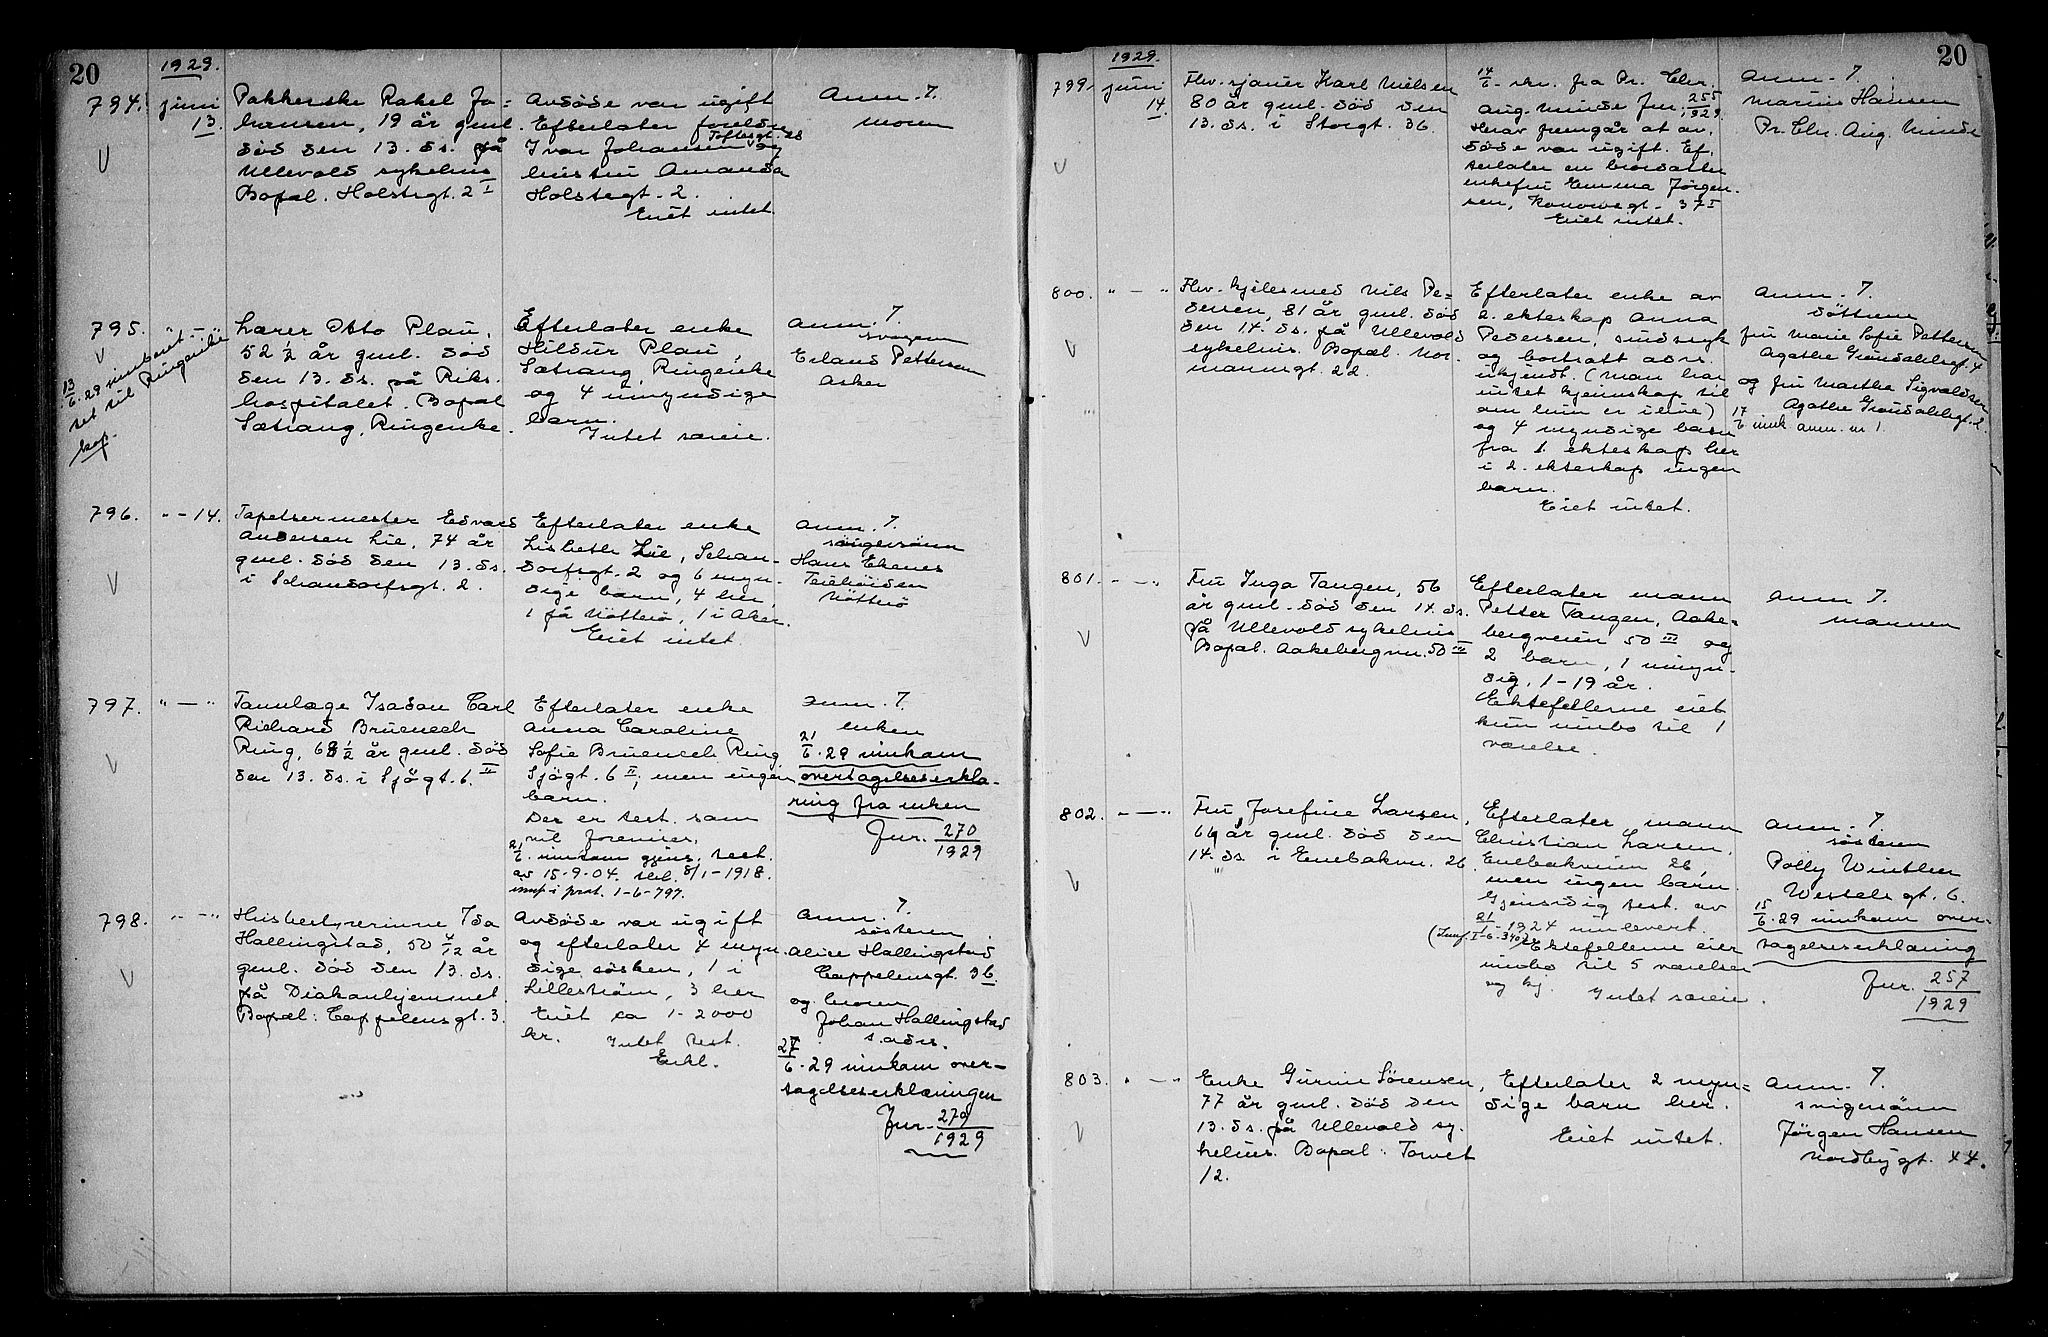 20
1929.
794.
juni
13.
Pakkerske Rakel Jo=
hansen, 19 år gml.
död den 13. ds. på
Ullevold sykehus
Bopæl. Holstsgt. 2 I
Avdöde var ugift
Efterlater foreldre
Toftesgt. 28
Ivar Johansen og
hustru Amanda
Holstsgt. 2.
Eiet intet.
Anm. 7.
moren
795.
13/6. 29 innberet-
set til Ringerike
Lærer Otto Plau,
52 1/2 år gml. död
den 13. ds. på Riks.
hospitalet. Bopæl
Sætrang, Ringerike.
Efterlater enke
Hildur Plau,
Sætrang, Ringerike
og 4 umyndige
barn.
Intet særeie.
Anm. 7.
svogeren
Erland Pettersen
Asker
796.
" - 14.
Tapetserermester Edvard
Andersen Lie, 74 år
gml. död den 13. ds.
i Schandorfsgt. 2.
Efterlater enke
Lisbeth Lie, Schan-
dorfsgt. 2 og 6 myn-
dige barn, 4 her,
1 på Nötterö, 1 i Aker.
Eiet intet.
Anm. 7.
svigersönn
Hans Ekenes
Teiehöiden
Nötterö
797.
" — "
Tannlæge Isadan Carl
Richard Bruenech
Ring, 68 1/2 år gml. död
den 13. ds. i Sjögt. 6. II
Efterlater enke
Anna Caroline
Sofie Bruenech Ring
Sjögt. 6 II, men ingen
barn.
Der er test. som
vil forevises.
21/6. innkom gjens. test.
av 15-9-04. tebl. 8/1-1918.
innf i prot. 1-6-797.
Anm. 7.
enken
21/6. 29 innkom
overtagelseserklæ-
ring fra enken
Jnr. 270/1929
798.
" — "
Husbestyrerinne Ida
Hallingstad, 50 4/12 år
gml. död den 13. ds.
på Diakonhjemmet
Bopæl: Cappelensgt. 3.
Avdöde var ugift
og efterlater 4 myn.
dige sösken, 1 i
Lilleström, 3 her
Eiet ca 1-2000
kr. Intet test.
Erkl.
Anm. 7.
sösteren
Alice Hallingstad
Cappelensgt. 36.
og broren
Johan Hallingstad
s. adr.
27/6. 29 innkom over-
tagelseserklæringen
Jnr. 279/1929
20
1929.
799.
juni
14.
Fhv. sjauer Karl Nielsen
80 år gml. död den
13. ds. i Storgt. 36.
14/6. skr. fra Pr. Chr.
Aug. Minde Jnr. 255/1929.
Herav fremgår at av.
döde var ugift. Ef.
terlater en brordatter
enkefru Emma Jörgen-
sen, Konowsgt. 37 I
Eiet intet.
Anm. 7.
Marius Hansen
Pr. Chr. Aug. Minde
800.
" — "
Fhv. kjelesmed Nils Pe=
dersen, 81 år gml. död
den 14. ds. på Ullevold
sykehus. Bopæl. Nor.
mannsgt. 22.
Efterlater enke av
2. ekteskap Anna
Pedersen, sindssyk
og bortsatt adrs.
ukjendt. (man har
intet kjennskap til
om hun er ilive)
og 4 myndige barn
fra 1. ekteskap her
i 2. ekteskap ingen
barn.
Eiet intet.
Anm. 7.
döttrene
fru Marie Sofie Pettersen
Agathe Gröndahlsgt. 4
og fru Marthe Sigvaldsen
Agathe Gröndahlsgt. 2.
17/6 innk anm. nr 1.
801.
" — "
Fru Inga Tangen, 56
år gml. död den 14. ds.
på Ullevold sykehus
Bopæl. Aakebergvn. 50 III
Efterlater mann
Petter Tangen, Aake=
bergveien 50 III og
2 barn, 1 myn-
dig, 1 - 19 år.
Ektefellerne eiet
kun innbo til 1
værelse.
Anm 7.
mannen
802.
" — "
Fru Josefine Larsen,
66 år gml. död den
14. ds. i Enebakvn. 26.
Efterlater mann
Christian Larsen,
Enebakveien 26,
men ingen barn.
Gjensidig test. av
21/1-1924 innlevert.
(Innf. I-6-340)
Ektefellerne eier
innbo til 5 værelser
og kj. Intet særeie.
Anm. 7
sösteren
Polly Winther
Wessels gt. 6.
15/6. 29 innkom over-
tagelseserklæring
Jnr. 257/1929
803.
" — "
Enke Gurine Sörensen,
77 år gml. död den
13. ds. på Ullevold sy.
kehus. Bopæl: Torvet
12.
Efterlater 2 myn=
dige barn her.
Eiet intet.
Anm. 7.
svigersönn
Jörgen Hansen
Nordbygt. 44.